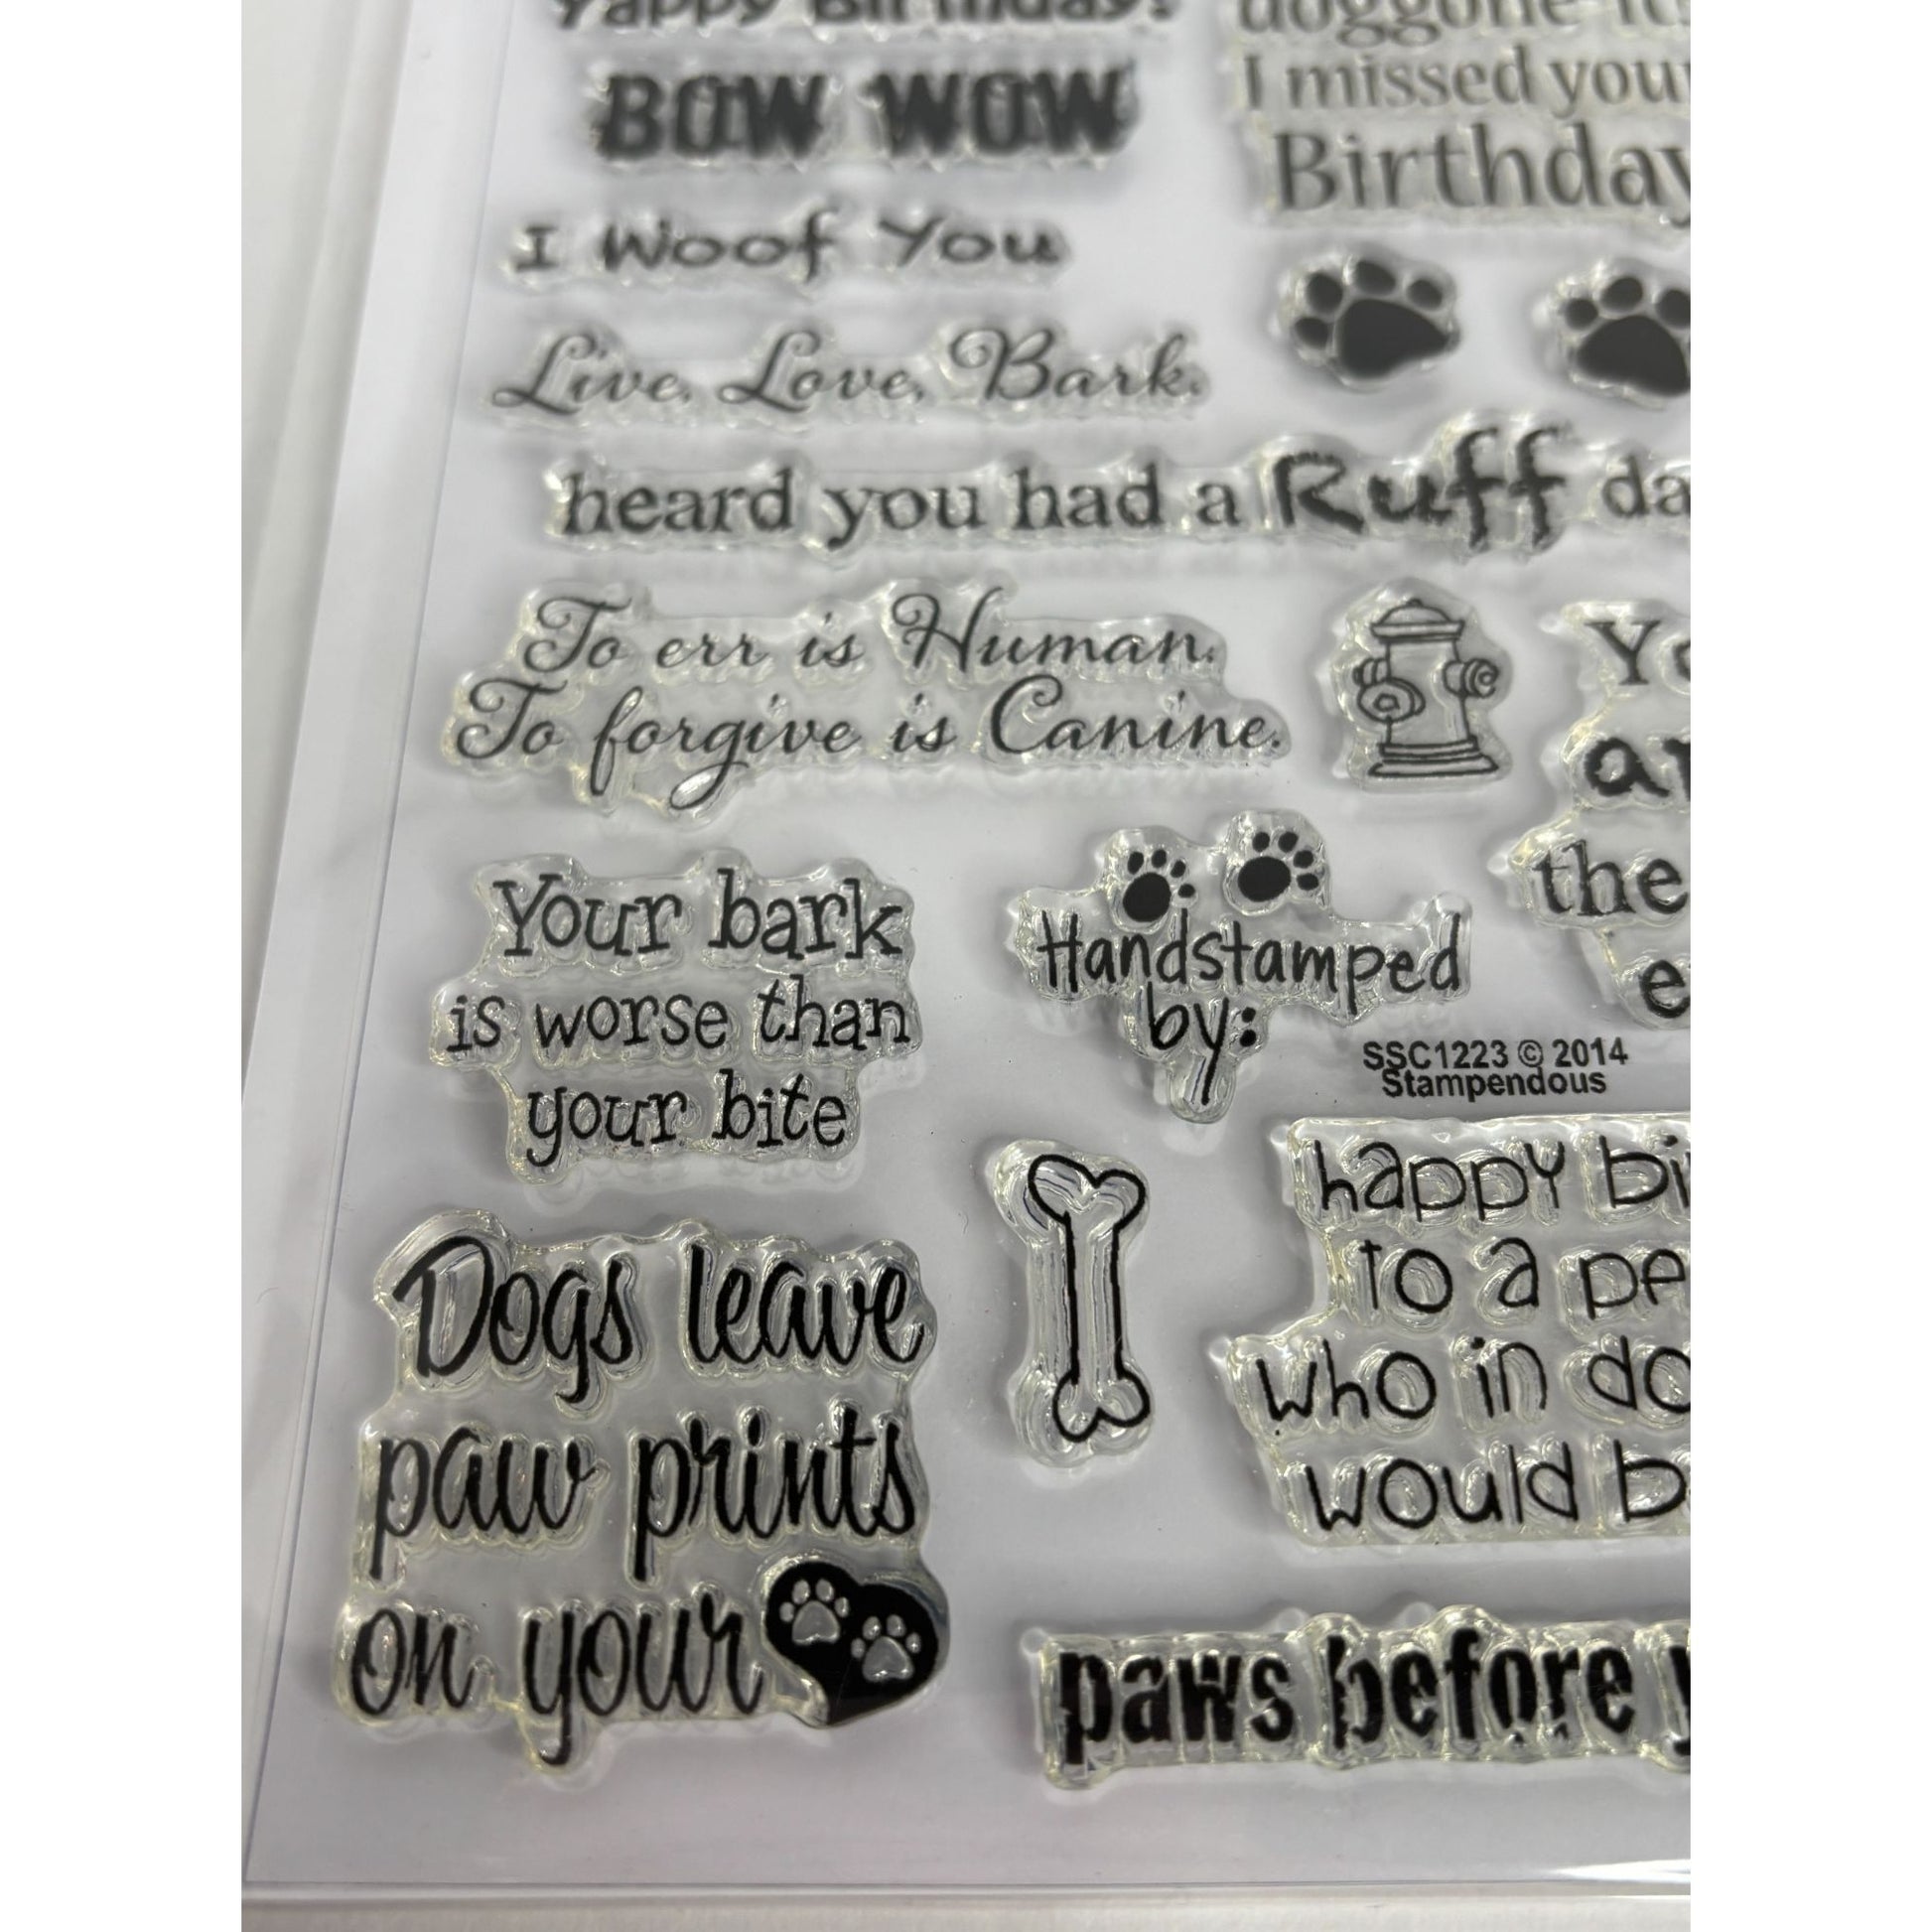 Yappy Birthday!
BOW WOW
I Woof You
Live. Love. Bark.
heard you had a Ruff da
To err is Human.
To forgive is Canine.
Your bark
is worse than
your bite
Dogs leave
paw prints
on your
doggone it
I missed your
Birthday
Handstamped
by:
the
SSC1223 © 2014
Stampendous
happy bi
to a pe
who in do
would b
paws before y